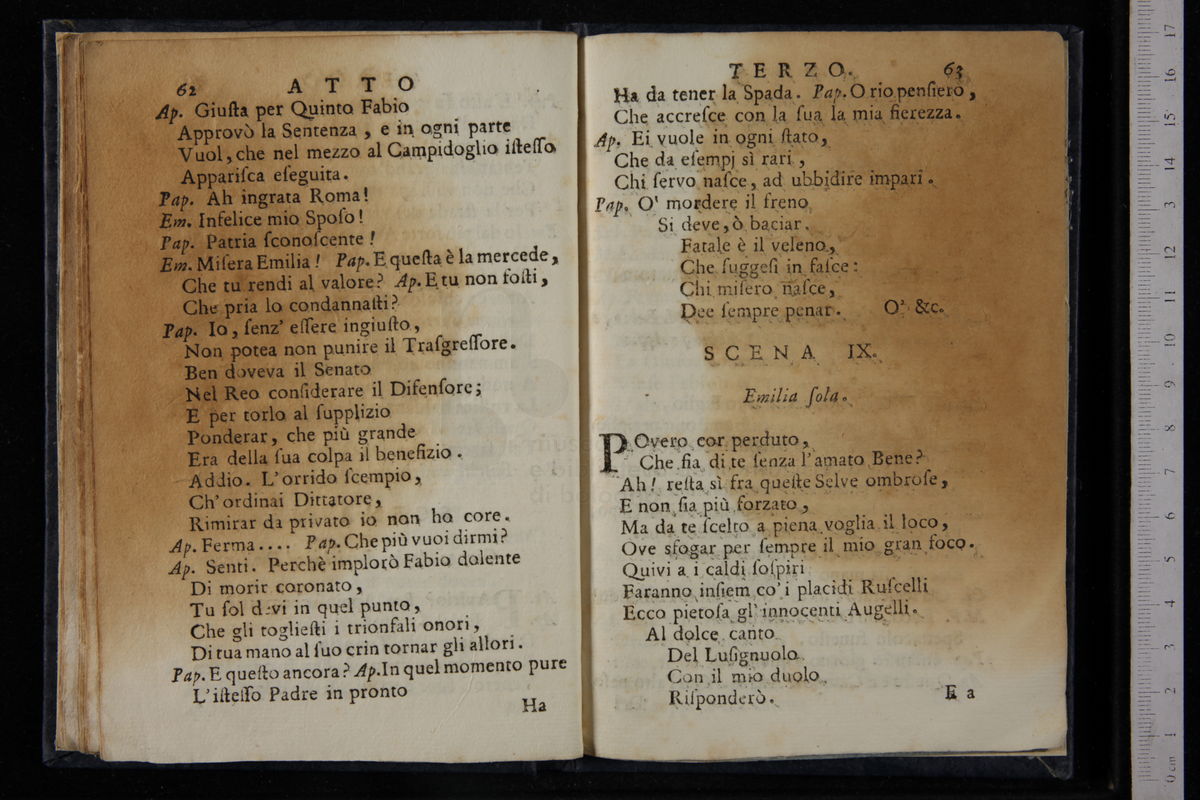 62 ATTO
Ap. Giuſta per Quinto Fabio
Approvò la Sentenza, e in ogni parte
Vuol, che nel mezzo al Campidoglio iſteſſo
Appariſca eſeguita.
Pap. Ah ingrata Roma!
Em. Infelice mio Spoſo!
Pap. Patria ſconoſcente!
Em. Miſera Emilia! Pap. E queſta è la mercede,
Che tu rendi al valore? Ap. E tu non foſti,
Che pria lo condannaſti?
Pap. Io, ſenz' eſſere ingiuſto,
Non potea non punire il Traſgreſſore.
Ben doveva il Senato
Nel Reo conſiderare il Difenſore;
E per torlo al ſupplizio
Ponderar, che più grande
Era della ſua colpa il benefizio.
Addio. L'orrido ſcempio,
Ch'ordinai Dittatore,
Rimirar da privato io non ho core.
Ap. Ferma.... Pap. Che più vuoi dirmi?
Ap. Senti. Perchè implorò Fabio dolente
Di morir coronato,
Tu ſol devi in quel punto,
Che gli toglieſti i trionfali onori,
Di tua mano al ſuo crin tornar gli allori.
Pap. E queſto ancora? Ap. In quel momento pure
L'iſteſſo Padre in pronto
Ha
TERZO. 63
Ha da tener la Spada. Pap. O rio penſiero,
Che accreſce con la ſua la mia fierezza.
Ap. Ei vuole in ogni ſtato,
Che da eſempj sì rari,
Chi ſervo naſce, ad ubbidire impari.
Pap. O' mordere il freno
Si deve, ò baciar.
Fatale è il veleno,
Che ſuggeſi in faſce:
Chi miſero naſce,
Dee ſempre penar. O' &c.
SCENA IX.
Emilia ſola.
POvero cor perduto,
Che fia di te ſenza l'amato Bene?
Ah! reſta sì fra queſte Selve ombroſe,
E non ſia più forzato,
Ma da te ſcelto a piena voglia il loco,
Ove sfogar per ſempre il mio gran foco.
Quivi a i caldi ſoſpiri
Faranno inſiem co'i placidi Ruſcelli
Ecco pietoſa gl'innocenti Augelli.
Al dolce canto
Del Luſignuolo
Con il mio duolo
Riſponderò.
E a